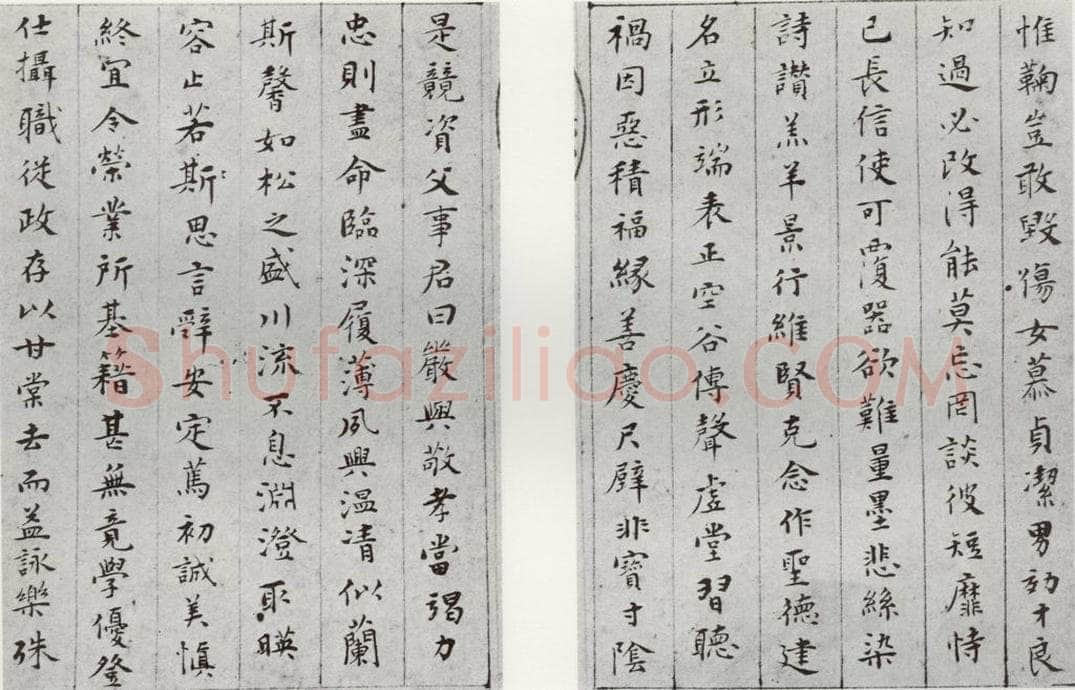 惟鞠豈敢毀傷女慕貞潔男効才良
知過必改得能莫忘罔談彼短靡恃
己長信使可覆器欲難量墨悲絲染
詩讚羔羊景行維賢克念作聖德建
名立形端表正空谷傳聲虛堂習聽
禍因惡積福緣善慶尺璧非寶寸陰
是競資父事君曰嚴與敬孝當竭力
忠則盡命臨深履薄夙興溫凊似蘭
斯馨如松之盛川流不息淵澄取暎
容止若斯思言辭安定篤初誠美慎
終宜令榮業所基籍甚無竟學優登
仕攝職從政存以甘棠去而益詠樂殊
Shufaziliao.COM